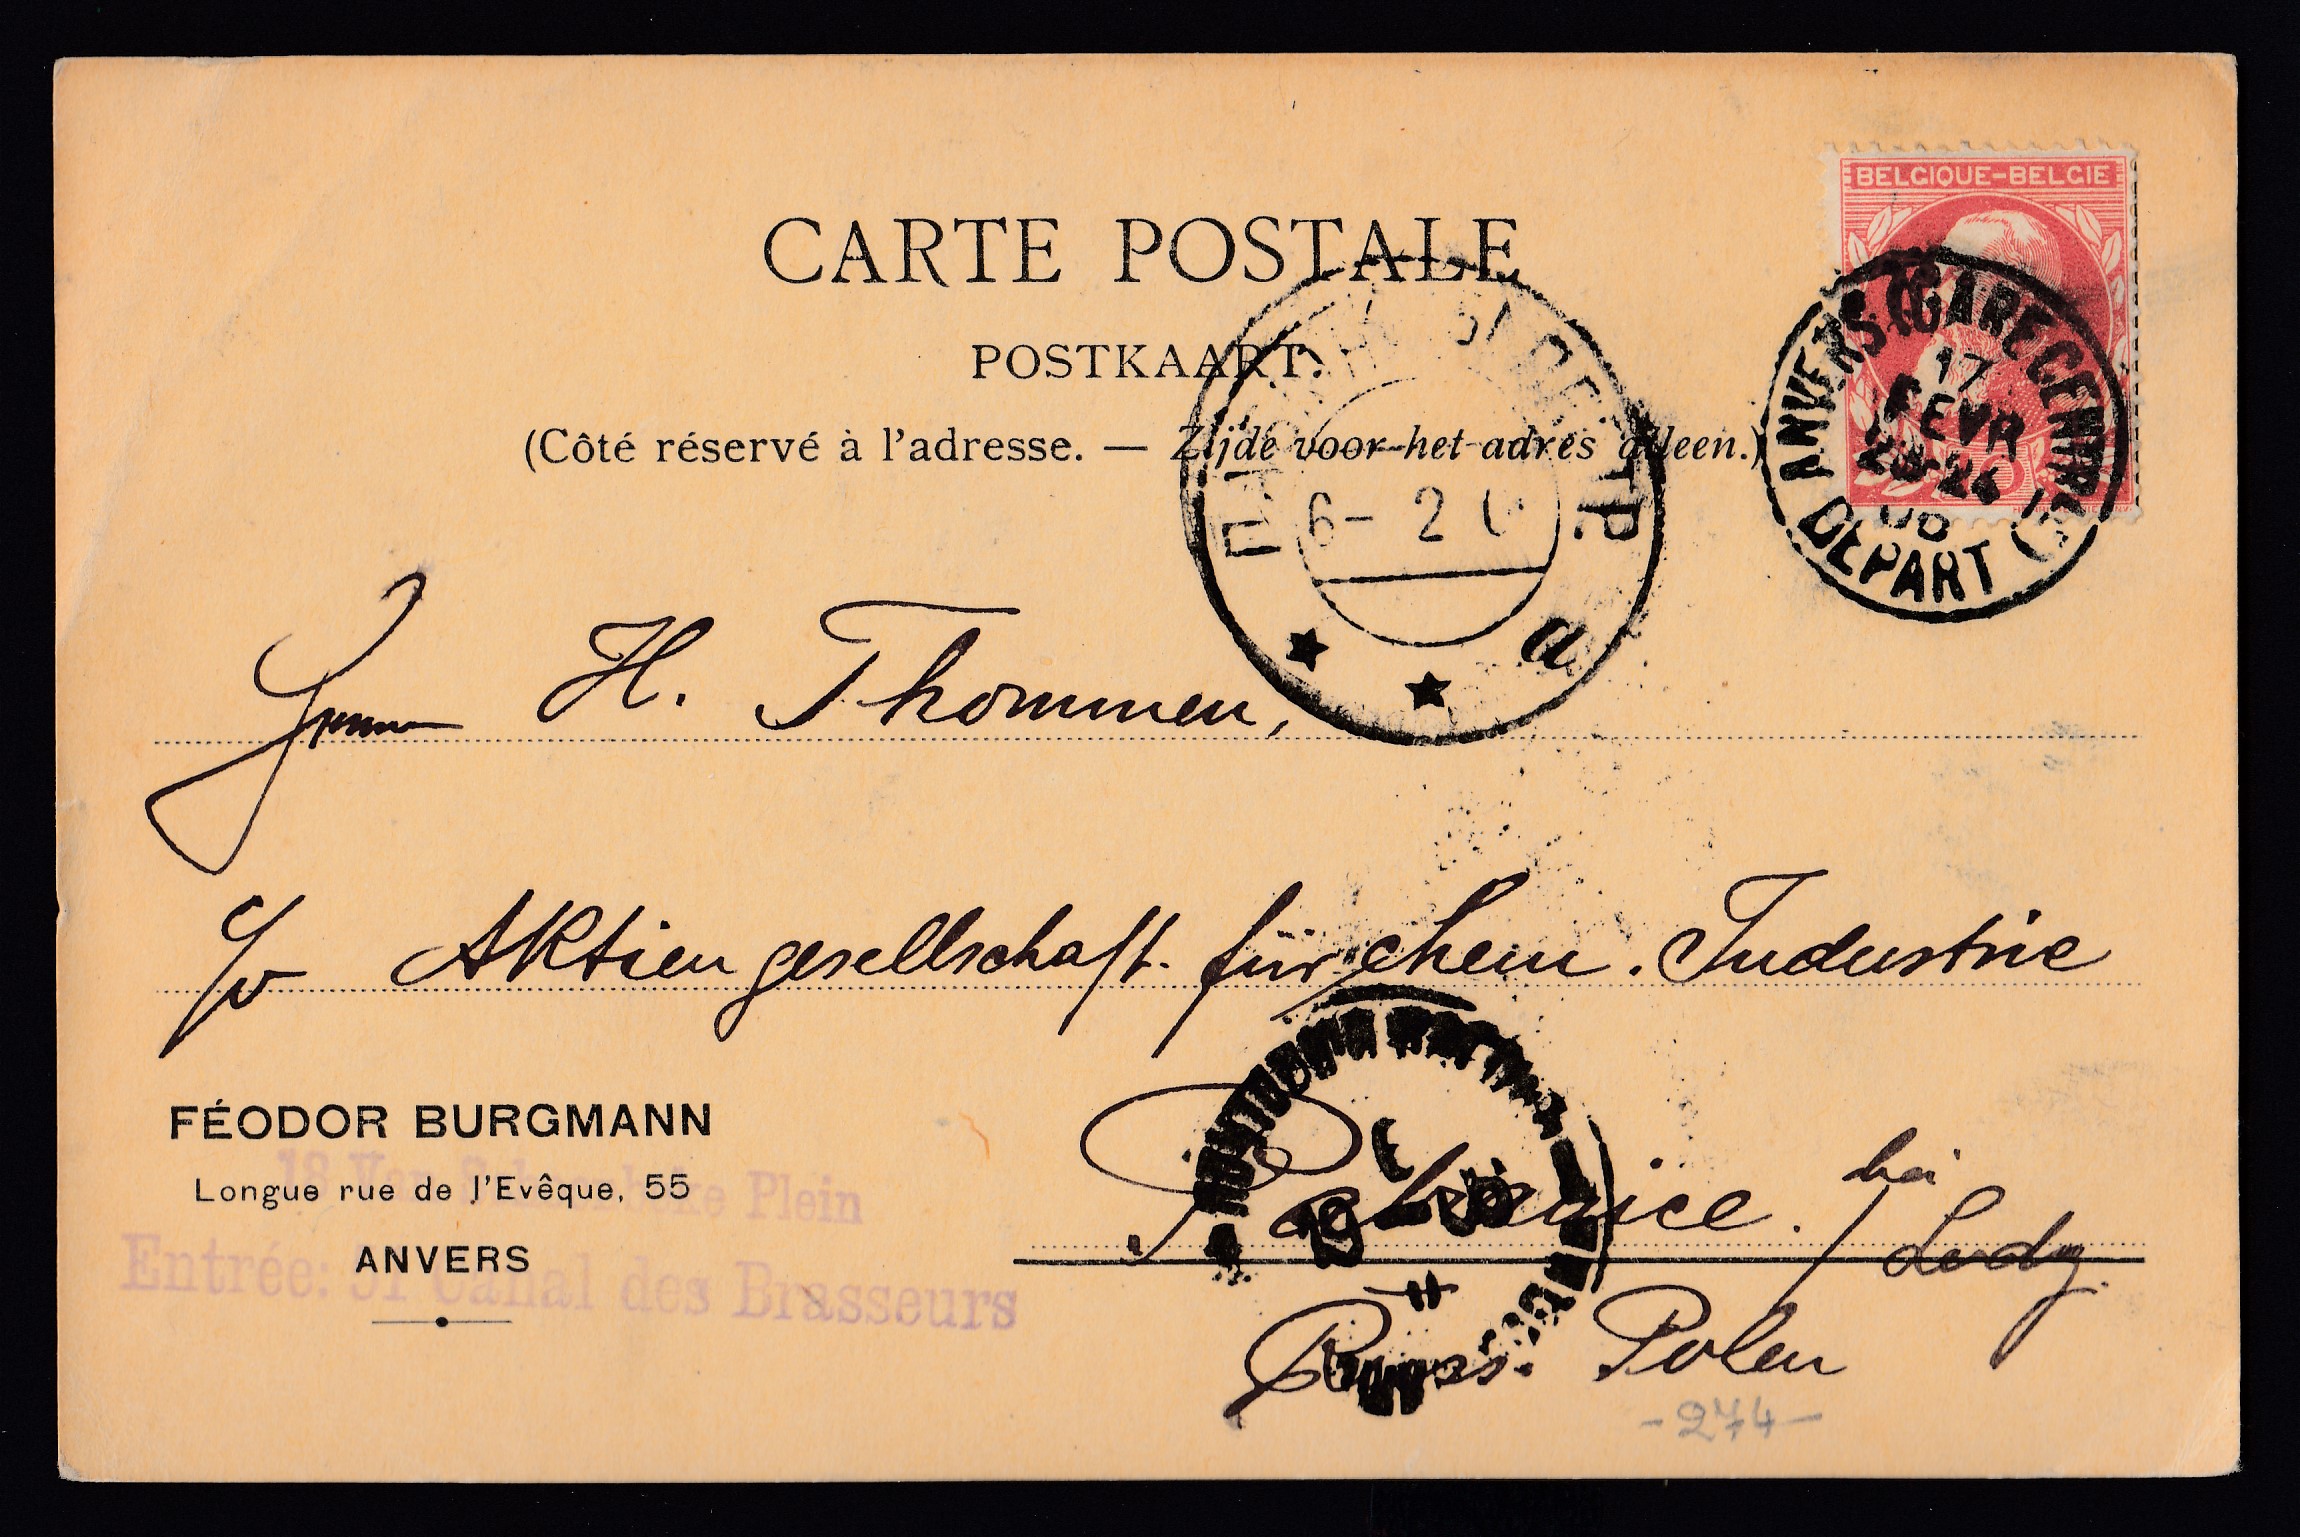 BELGIQUE-BELGIE
CARTE POSTALE
POSTKAART.
(Côté réservé à l'adresse. — Zijde voor het adres alleen.)
ANVERS GARE CENTRE
17
FEVR
DEPART
6- 2
a
Herrn H. Thommen,
p/v Aktiengesellschaft für chem. Industrie
Pabianice. bei Lodz.
Russ. Polen
-274-
FÉODOR BURGMANN
Longue rue de l'Evêque, 55
ANVERS
Plein
Entrée: 51 Canal des Brasseurs